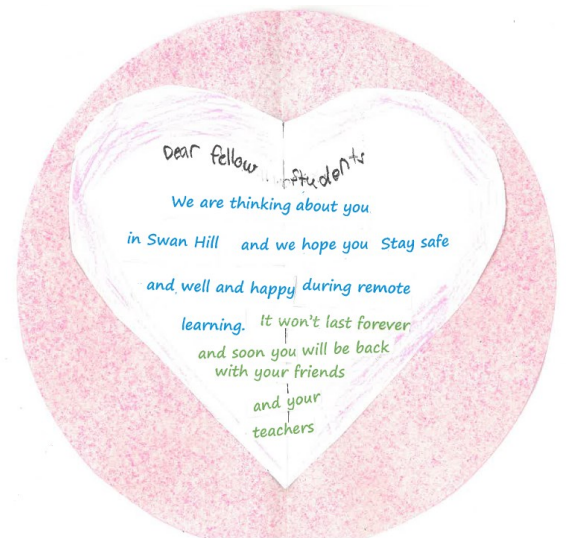 Dear fellow students
We are thinking about you
in Swan Hill and we hope you Stay safe
and well and happy during remote
learning. It won't last forever
and soon you will be back
with your friends
and your
teachers